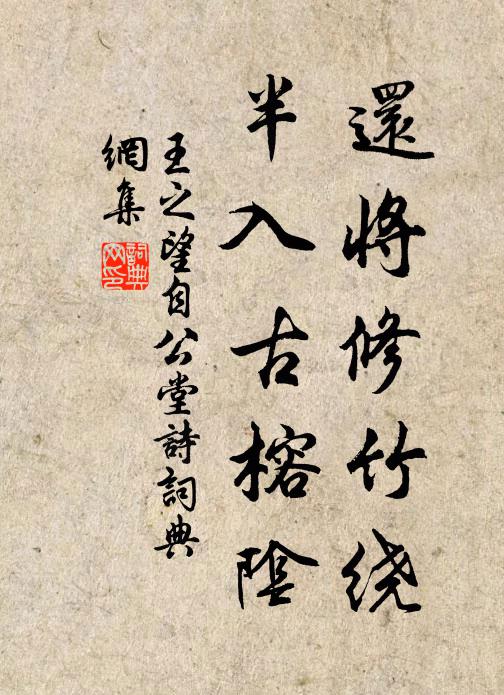 還將修竹绕
半入古榕陰
王之望自公堂詩詞典
網集
詞典
网印